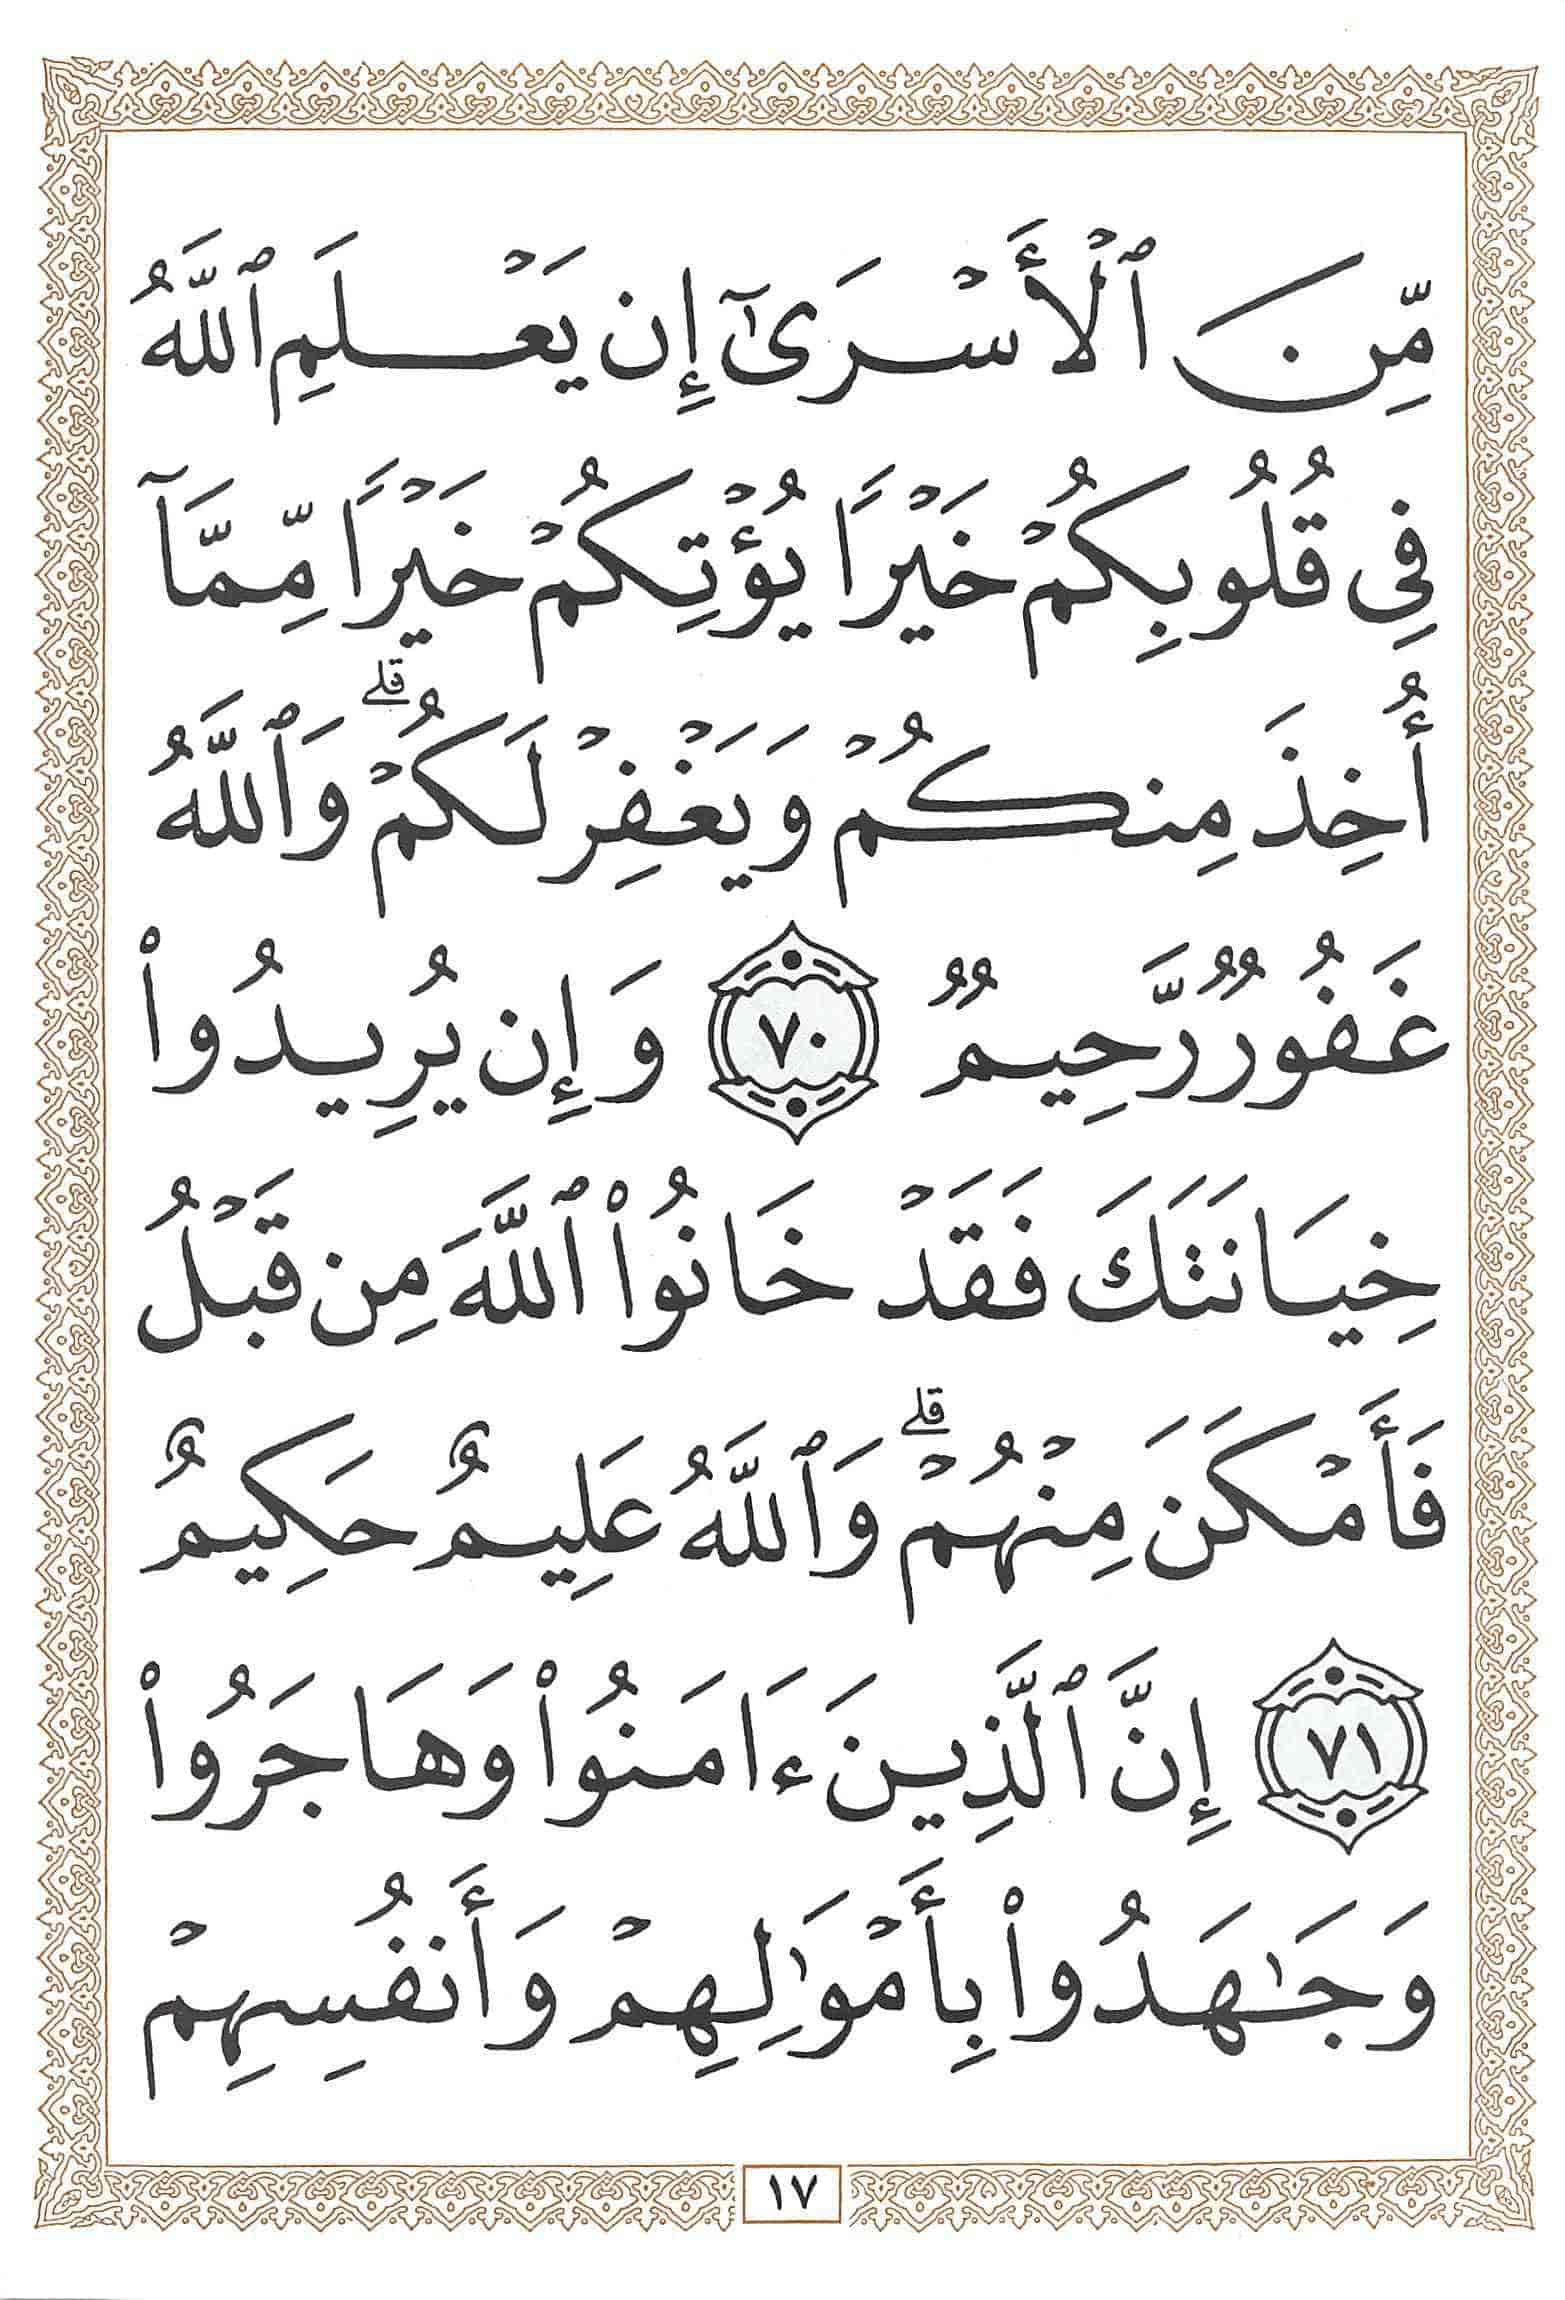 مِّنَ ٱلْأَسْرَىٰٓ إِن يَعْلَمِ ٱللَّهُ
فِى قُلُوبِكُمْ خَيْرًا يُؤْتِكُمْ خَيْرًا مِّمَّآ
أُخِذَ مِنكُمْ وَيَغْفِرْ لَكُمْ ۗ وَٱللَّهُ
غَفُورٌ رَّحِيمٌ ٧٠ وَإِن يُرِيدُوا۟
خِيَانَتَكَ فَقَدْ خَانُوا۟ ٱللَّهَ مِن قَبْلُ
فَأَمْكَنَ مِنْهُمْ ۗ وَٱللَّهُ عَلِيمٌ حَكِيمٌ
٧١ إِنَّ ٱلَّذِينَ ءَامَنُوا۟ وَهَاجَرُوا۟
وَجَـٰهَدُوا۟ بِأَمْوَٰلِهِمْ وَأَنفُسِهِمْ
١٧